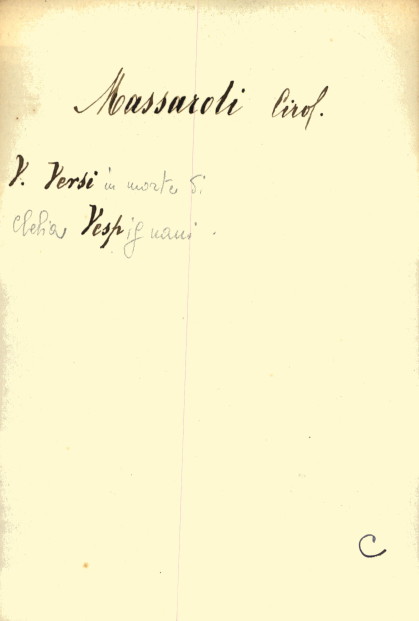 Massaroli Cirof.
V. Versi in morte di
Clelia Vespignani.
C